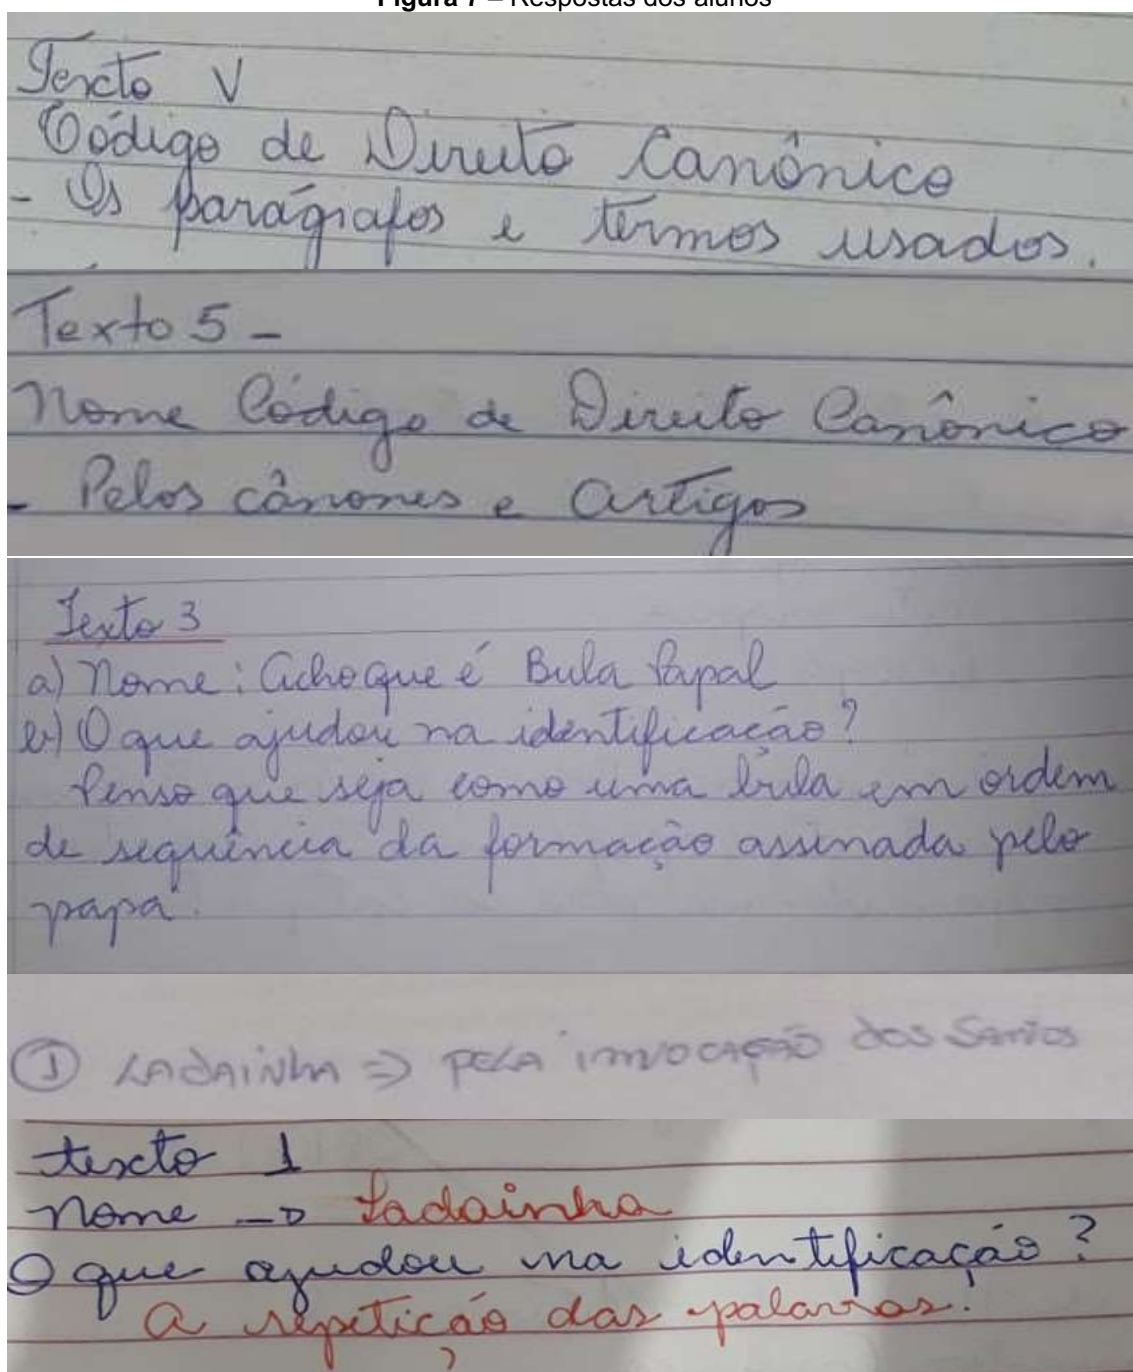 Figura 7 – Respostas dos alunos
Texto V
Código de Direito Canônico
- Os parágrafos e termos usados.
Texto 5 -
Nome Código de Direito Canônico
- Pelos cânones e artigos
Texto 3
a) Nome: Acho que é Bula Papal
b) O que ajudou na identificação?
Penso que seja como uma bula em ordem
de sequência da formação assinada pelo
papa.
① LADAINHA => PELA invocação dos Santos
texto 1
nome -> Ladainha
O que ajudou na identificação?
A repetição das palavras.